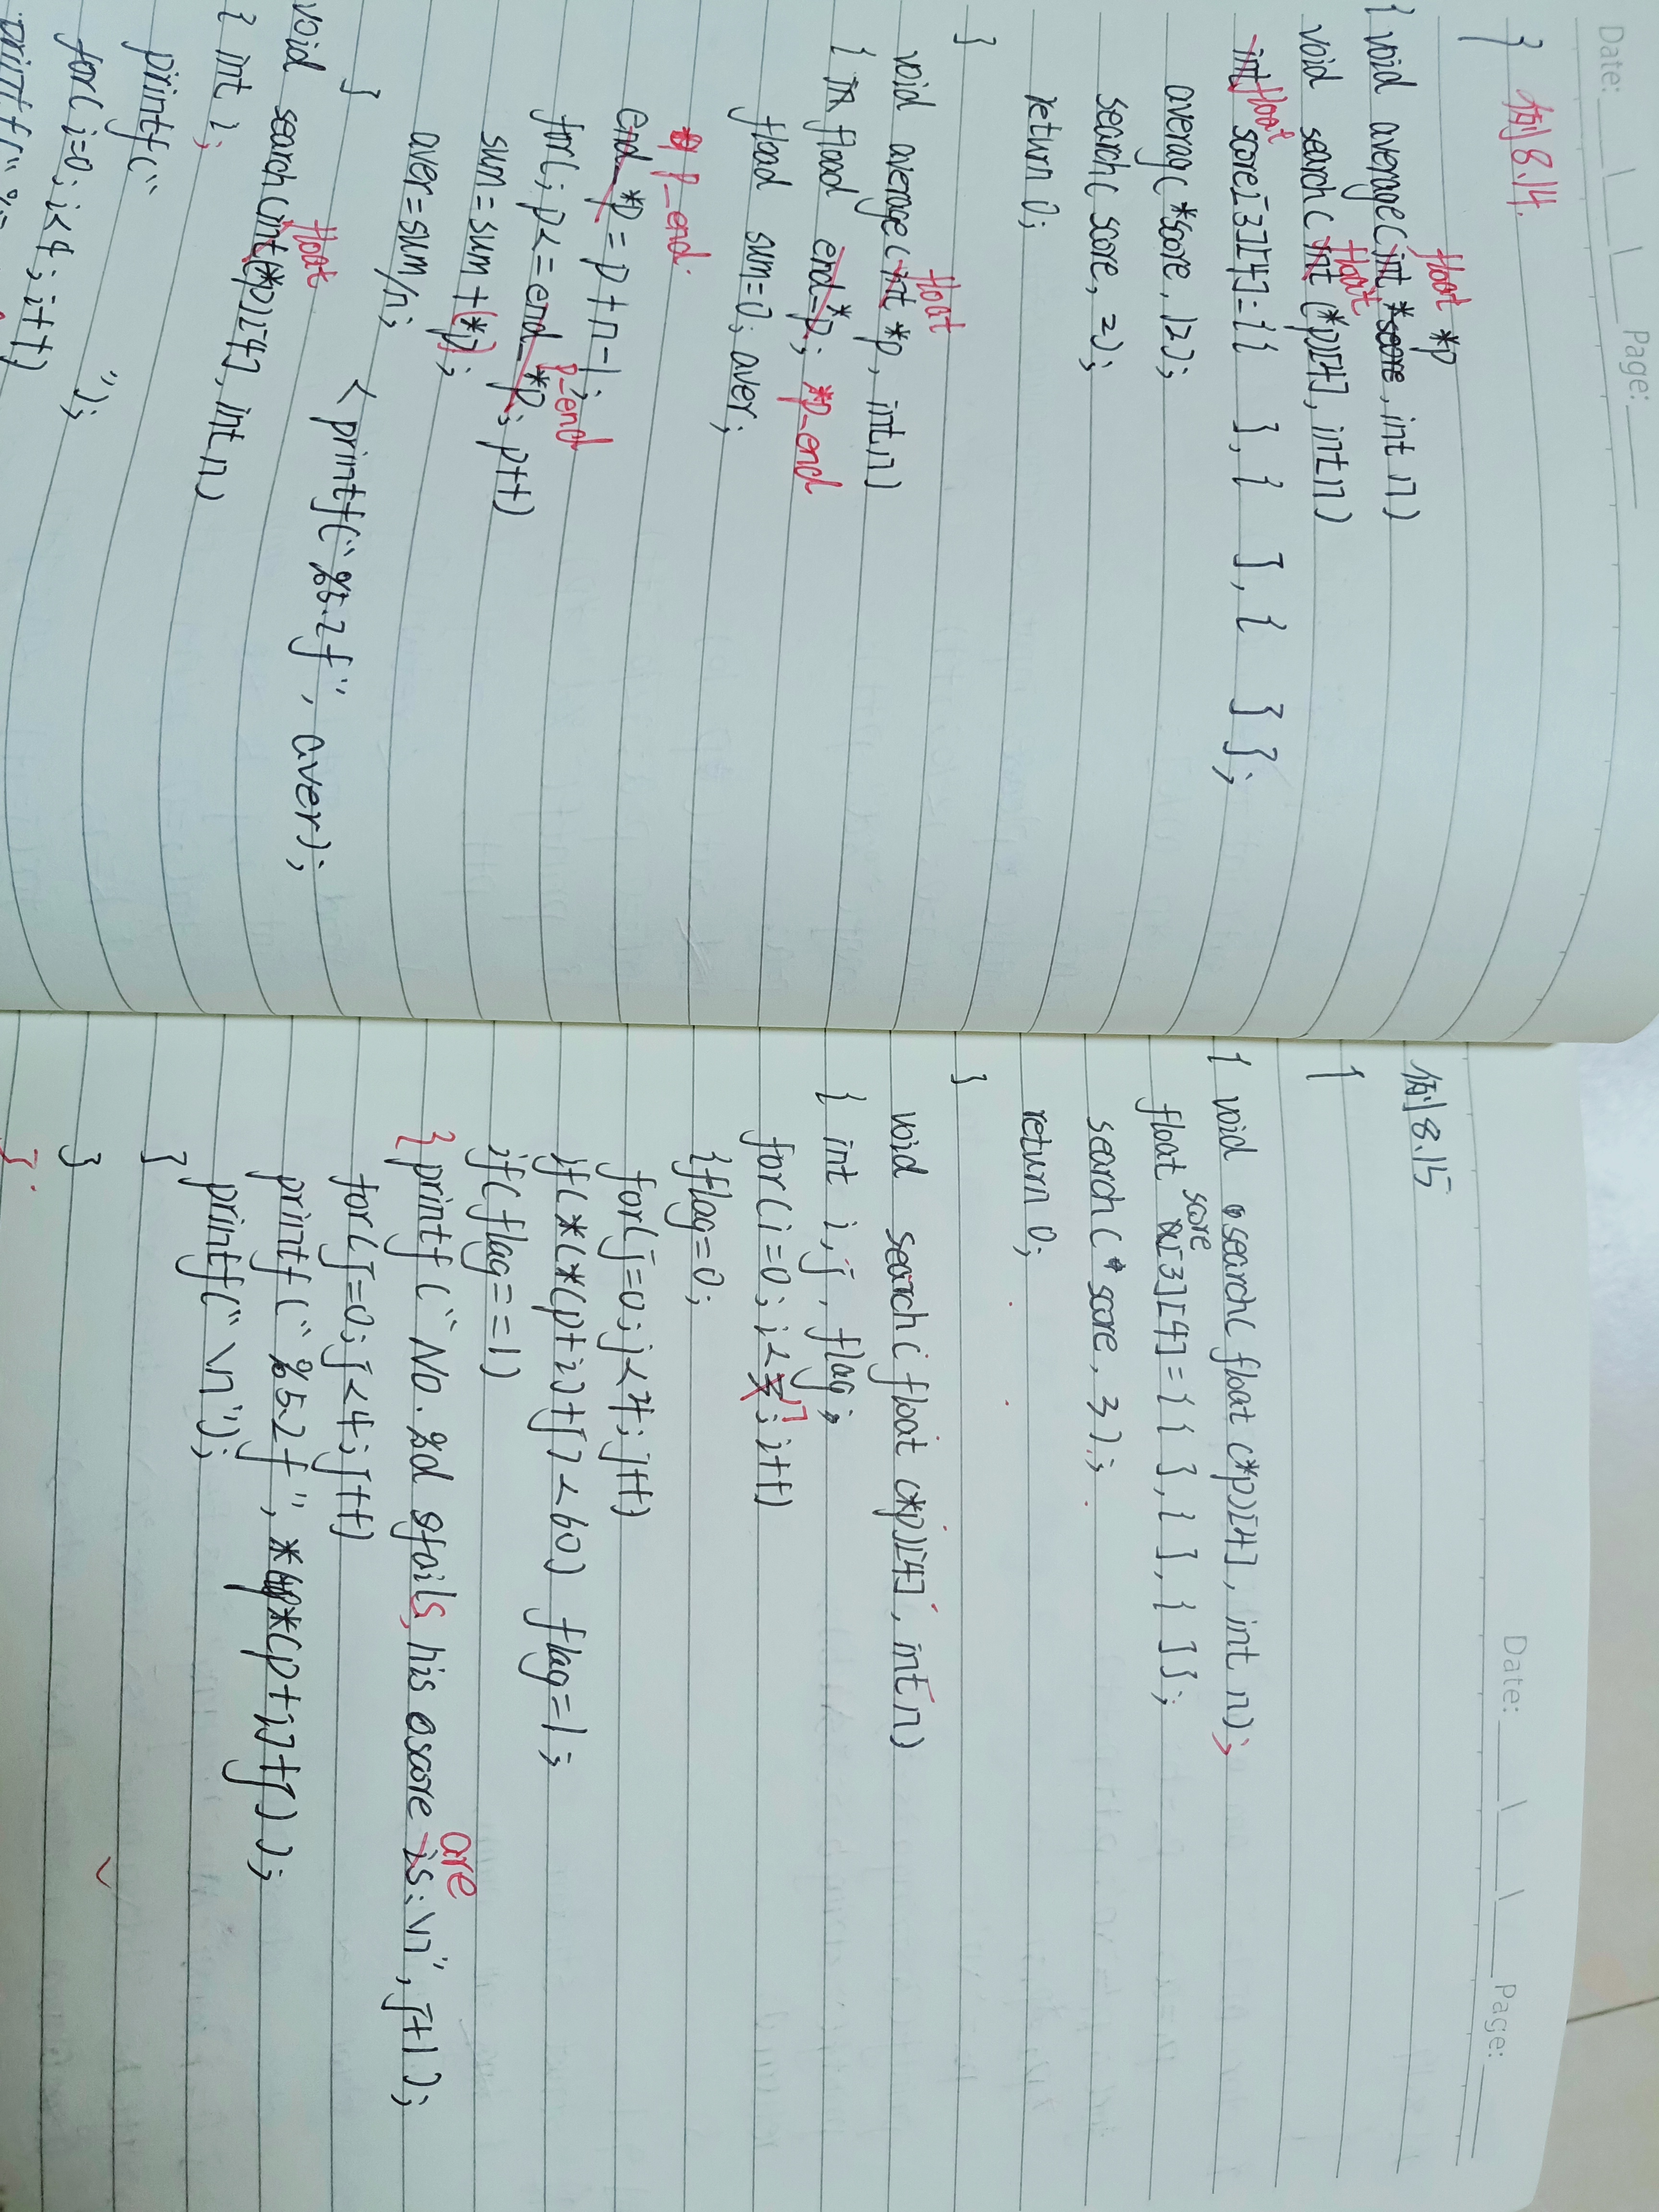 Date: ___\___\___ Page:
例8.14.
}
float *p
{ void average(int *score, int n)
void search(int (*p)[4], int n)
float
int float score[3][4]={{ },{ },{ }};
averag(*score,12);
search(score,2);
return 0;
}
float
void average(int *p, int n)
{ float end_*p; *p_end
float sum=0; aver;
p_end.
end_*p=p+n-1;
p_end
for(; p<=end_*p; p++)
sum=sum+(*p);
aver=sum/n;
< printf("%5.2f", aver);
}
float
void search(int(*p)[4], int n)
{ int i;
printf("          ");
for(i=0; i<4; i++)
Date: ___\___\___ Page:
例8.15
{
{ void search(float (*p)[4], int n);
score
float [3][4]={{ },{ },{ }};
search(*score,3);
return 0;
}
void search(float (*p)[4], int n)
{ int i,j, flag;
for(i=0; i<n; i++)
{flag=0;
for(j=0; j<4; j++)
if(*(*(p+i)+j)<60) flag=1;
if(flag==1)
{printf("No.%d fails, his score is:\n", j+1);
are
for(j=0; j<4; j++)
printf("%5.2f", *(*(p+i)+j));
printf("\n");
}
}
}.